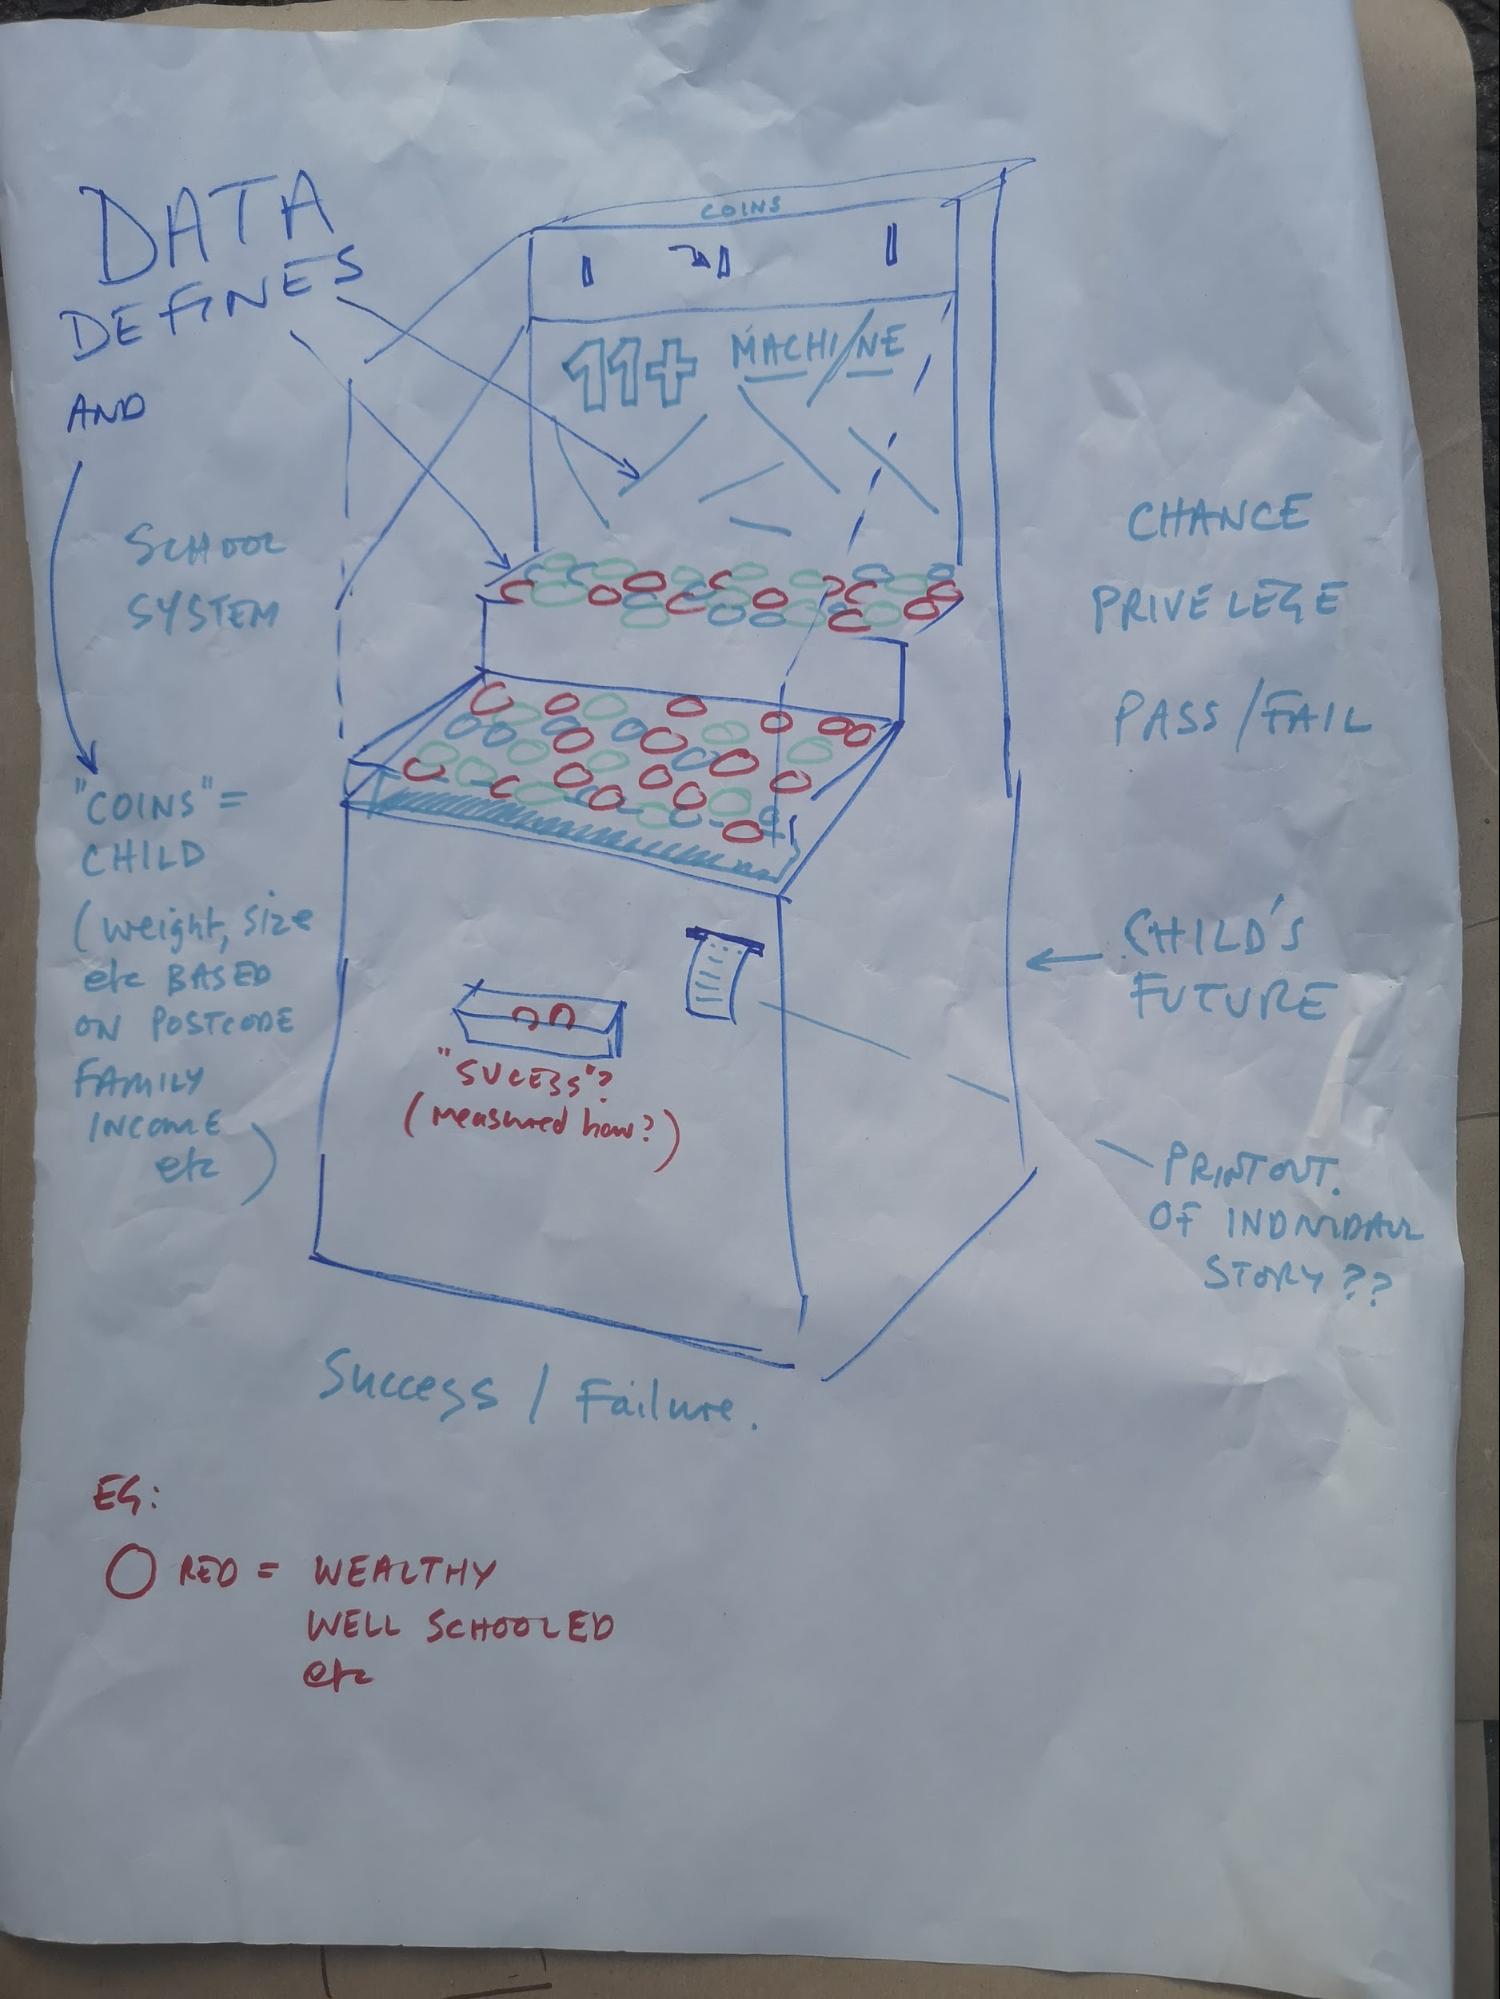 DATA
DEFINES
AND
SCHOOL
SYSTEM
"COINS" =
CHILD
(weight, size
etc BASED
ON POSTCODE
FAMILY
INCOME
etc)
COINS
11+ MACHINE
"SUCESS"?
(measured how?)
CHANCE
PRIVELEGE
PASS/FAIL
CHILD'S
FUTURE
PRINTOUT.
OF INDIVIDAUL
STORY??
Success / Failure.
EG:
RED = WEALTHY
WELL SCHOOLED
etc